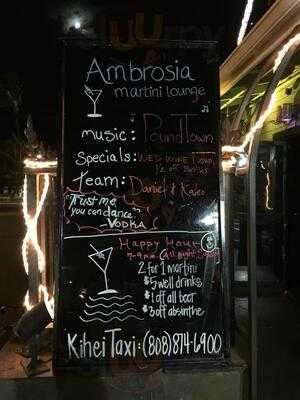 Ambrosia
martini lounge
music: PoundTown
Specials: WED WINE Down
1/2 off Bottles
Team: Daniel & Kaleo
"Trust me
you can dance"
-VODKA
Happy Hour
7-9pm (All night Sunday)
2 for 1 martini
$5 well drinks
$1 off all beer
$3 off absinthe
Kihei Taxi: (808) 874-6900